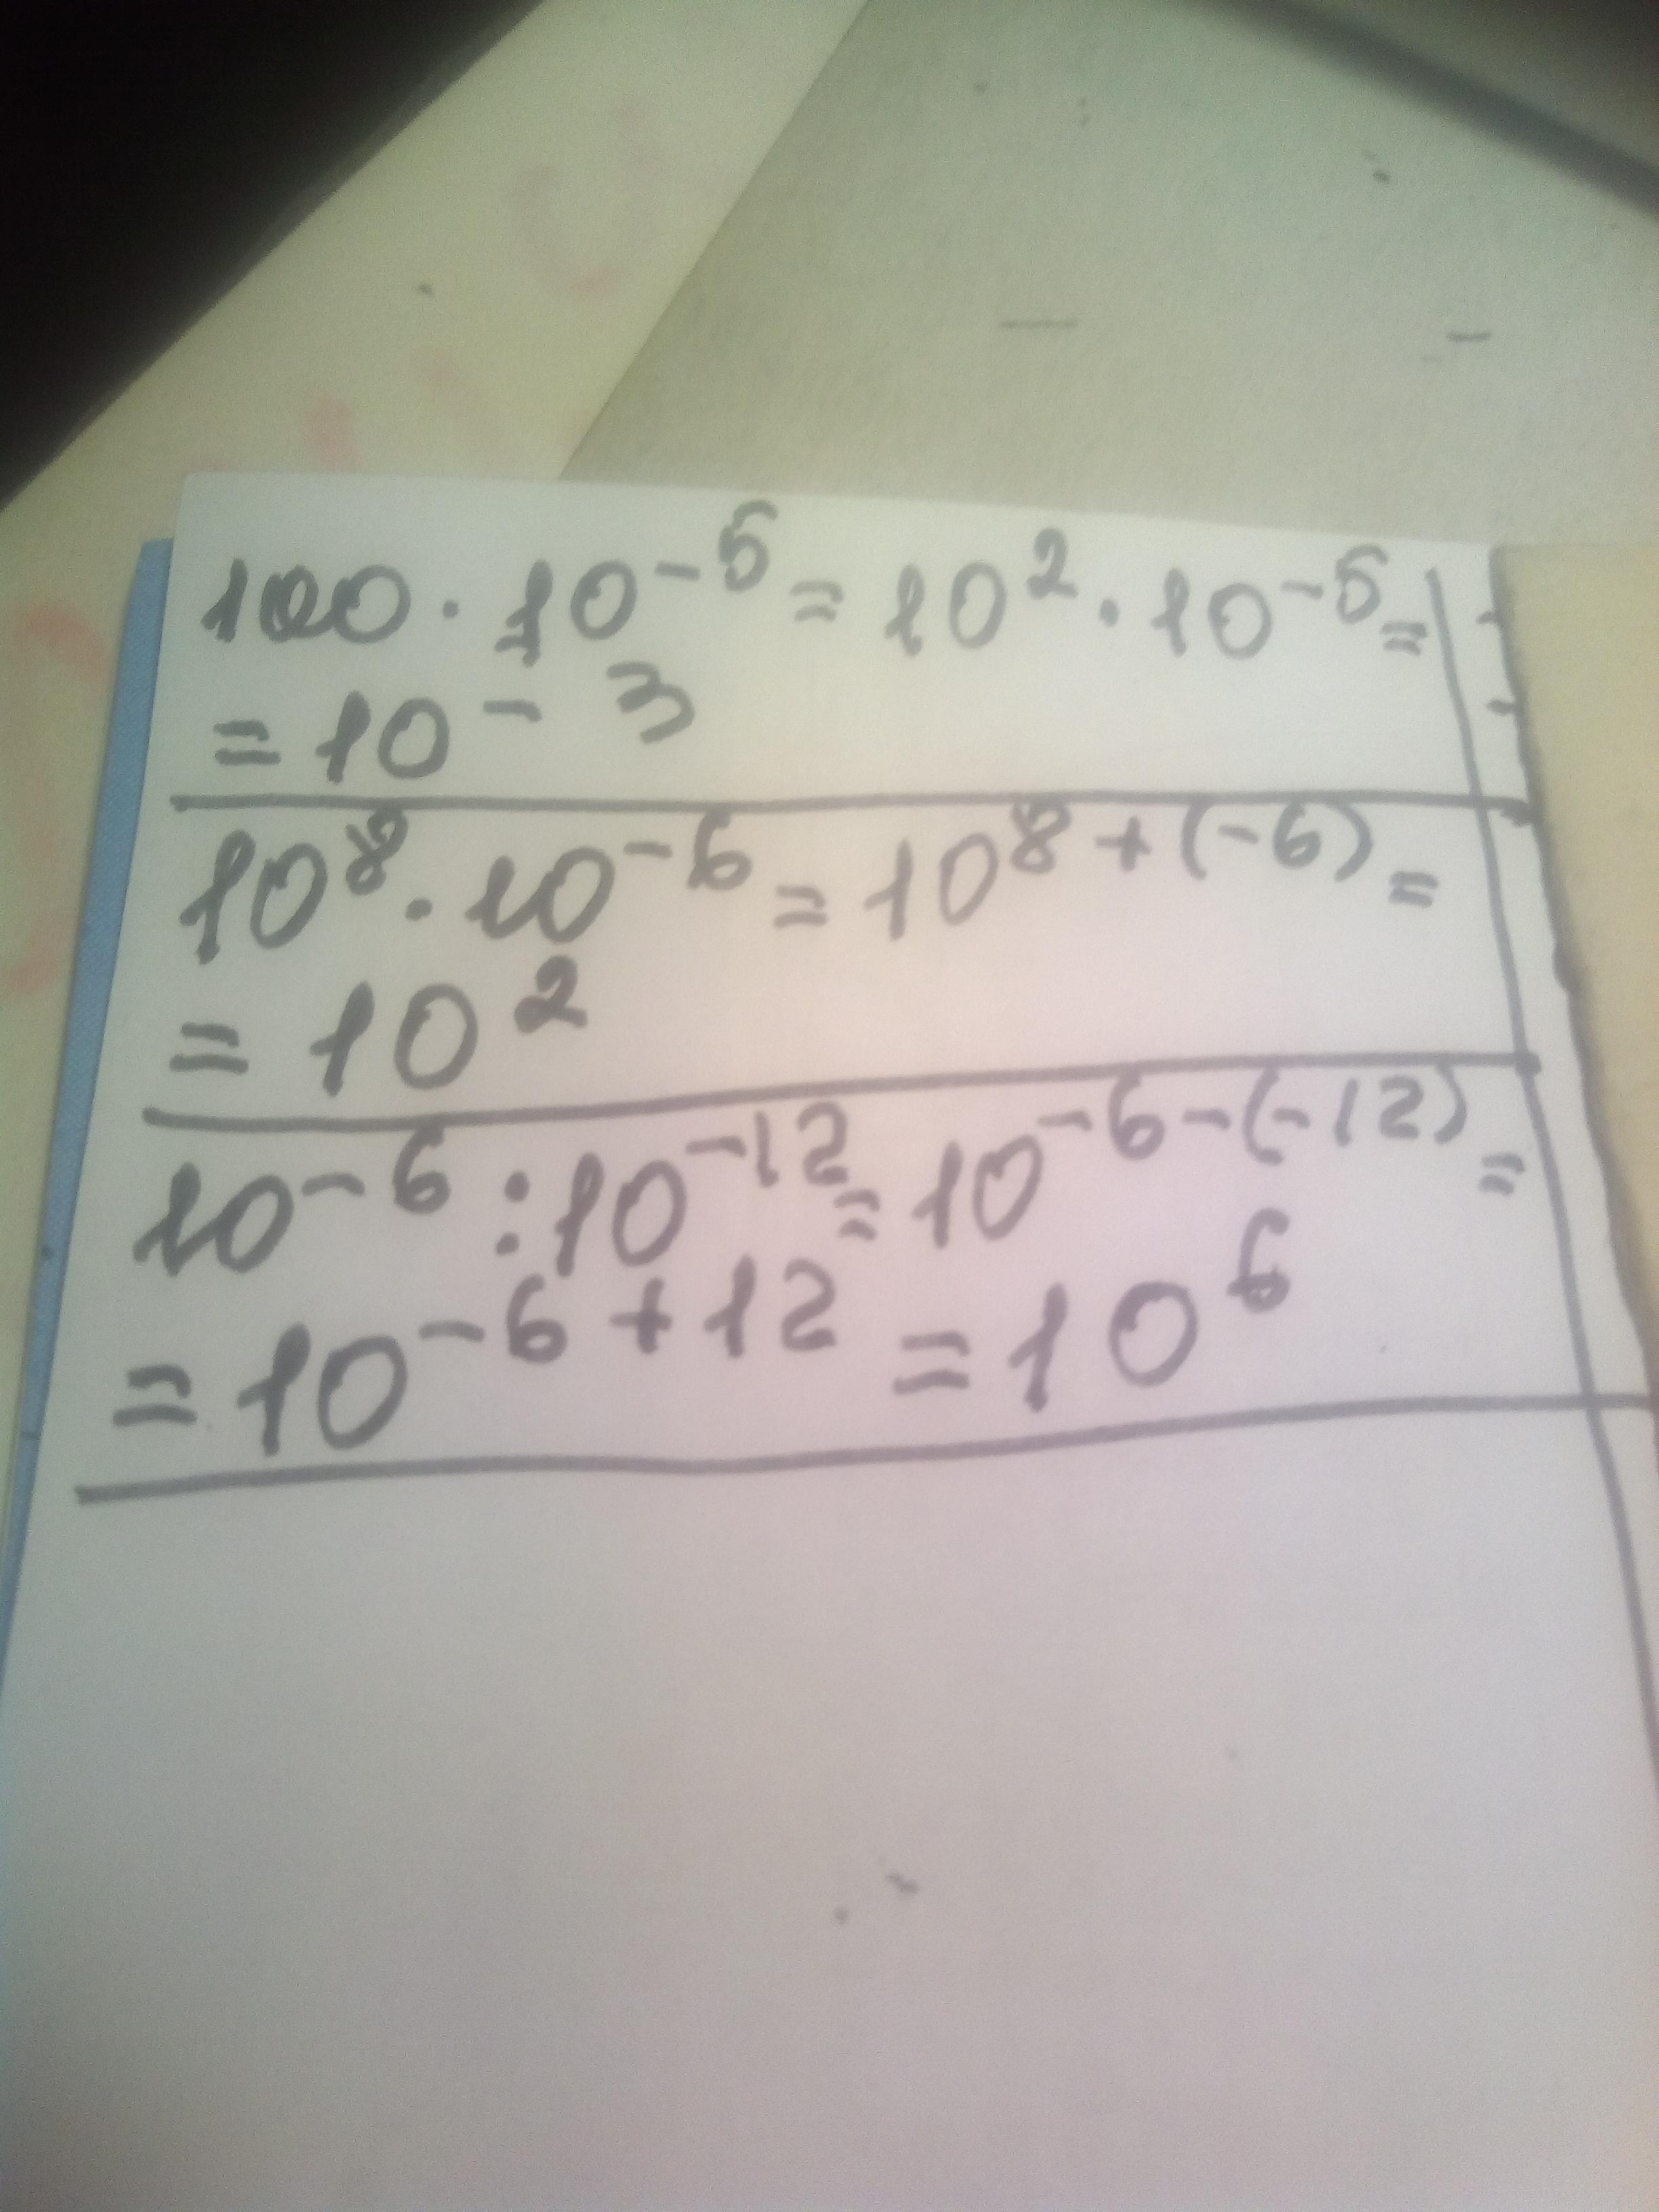 100 · 10⁻⁵ = 10² · 10⁻⁵ =
= 10⁻³
10⁸ · 10⁻⁶ = 10⁸⁺⁽⁻⁶⁾ =
= 10²
10⁻⁶ : 10⁻¹² = 10⁻⁶⁻⁽⁻¹²⁾ =
= 10⁻⁶⁺¹² = 10⁶